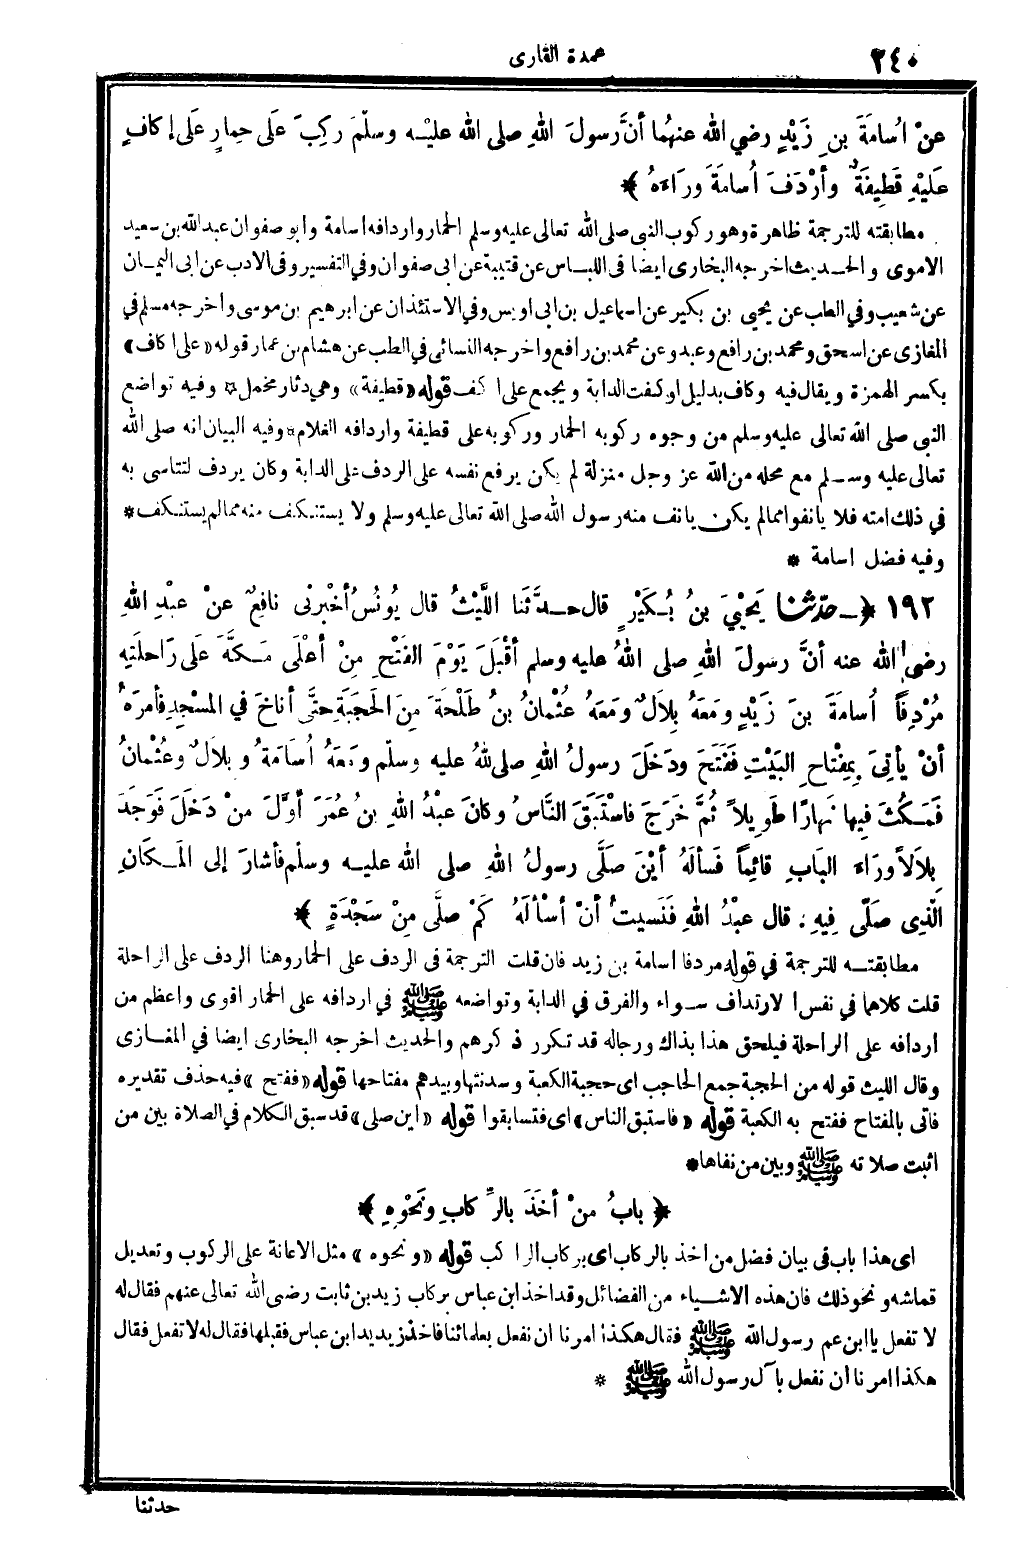 ٢٤٠ عمدة القارى
عنْ اُسامَةَ بنِ زَيْدٍ رضي الله عنهُما أنَّ رسولَ اللهِ صلى الله عليْه وسلّمَ ركِبَ عَلَى حِمارٍ عَلَى إكافٍ
عَلَيْهِ قَطِيفَةٌ وأرْدَفَ اُسامَةَ ورَاءَهُ ﴾
مطابقته للترجمة ظاهرة وهو ركوب النبى صلى الله تعالى عليه وسلم الحمار واردافه اسامة وابو صفوان عبدالله بن سعيد
الاموى والحديث اخرجه البخارى ايضا فى اللباس عن قتيبة عن ابى صفوان وفي التفسير وفى الادب عن ابى اليمان
عن شعيب وفي الطب عن يحيى بن بكير عن اسماعيل بن ابى اويس وفي الاستئذان عن ابرهيم بن موسى واخرجه مسلم في
المغازى عن اسحق ومحمد بن رافع وعبد وعن محمد بن رافع واخرجه النسائى في الطب عن هشام بن عمار قوله «على اكاف»
بكسر الهمزة ويقال فيه وكاف بدليل اوكفت الدابة ويجمع على اكف قوله «قطيفة» وهي دثار مخمل * وفيه تواضع
النبى صلى الله تعالى عليه وسلم من وجوه ركوبه الحمار وركوبه على قطيفة واردافه الغلام * وفيه البيان انه صلى الله
تعالى عليه وسلم مع محله من الله عز وجل منزلة لم يكن يرفع نفسه على الردف على الدابة وكان يردف لتتاسى به
في ذلك امته فلا يانفوا ممالم يكن يانف منه رسول الله صلى الله تعالى عليه وسلم ولا يستنكف منه ممالم يستنكف *
وفيه فضل اسامة *
١٩٢ ﴿ ـ حدّثنا يَحْيَى بنُ بُكَيْرٍ قال حدَّثَنا اللَّيْثُ قال يُونُسُ أخْبرنى نافِعٌ عنْ عبْدِ اللهِ
رضى الله عنه أنَّ رسولَ اللهِ صلى اللهُ عليه وسلم أقْبَلَ يَوْمَ الفَتْحِ مِنْ أعْلَى مَكَّةَ عَلَى رَاحلَتِهِ
مُرْدِفاً اُسامَةَ بنَ زَيْدٍ ومَعَهُ بِلاَلٌ ومَعَهُ عُثْمانُ بنُ طَلْحَةَ مِنَ الحَجَبَةِ حتَّى أناخَ في المَسْجِدِ فأمرَهُ
أنْ يأتِىَ بِمِفْتاحِ البَيْتِ فَفَتَحَ ودَخَلَ رسولُ اللهِ صلى اللهُ عليه وسلّم ومَعَهُ اُسَامَةُ وبلاَلٌ وعُثْمانُ
فَمَكُثَ فِيها نَهارًا طَوِيلاً ثُمَّ خَرَجَ فاسْتَبَقَ النَّاسُ وكانَ عبْدُ اللهِ بنُ عُمَرَ أوَّلَ منْ دَخَلَ فَوَجَدَ
بِلاَلاً ورَاءَ البَابِ قائِماً فَسألَهُ أيْنَ صَلَّى رسولُ اللهِ صلى الله عليه وسلّم فأشارَ إلى المَكَانِ
الَّذِى صَلّى فِيهِ : قال عبْدُ اللهِ فَنَسيتُ أنْ أسْألَهُ كَمْ صلَّى مِنْ سَجْدَةٍ ﴾
مطابقته للترجمة في قوله مردفا اسامة بن زيد فان قلت الترجمة فى الردف على الحمار وهنا الردف على الراحلة
قلت كلاهما في نفس الارتداف سواء والفرق في الدابة وتواضعه ﷺ في اردافه على الحمار اقوى واعظم من
اردافه على الراحلة فيلحق هذا بذاك ورجاله قد تكرر ذكرهم والحديث اخرجه البخارى ايضا في المغازى
وقال الليث قوله من الحجبة جمع الحاجب اى حجبة الكعبة وسدنتها وبيدهم مفتاحها قوله «ففتح» فيه حذف تقديره
فاتى بالمفتاح ففتح به الكعبة قوله «فاستبق الناس» اى فتسابقوا قوله «اين صلى» قد سبق الكلام في الصلاة بين من
اثبت صلاته ﷺ وبين من نفاها *
﴿ بابُ منْ أخَذَ بالرِّكابِ ونَحْوِهِ ﴾
اى هذا باب فى بيان فضل من اخذ بالركاب اى بركاب الراكب قوله «ونحوه» مثل الاعانة على الركوب وتعديل
قماشه ونحو ذلك فان هذه الاشياء من الفضائل وقد اخذ ابن عباس بركاب زيد بن ثابت رضى الله تعالى عنهم فقال له
لا تفعل يا ابن عم رسول الله ﷺ فقال هكذا امرنا ان نفعل بعلمائنا فاخذ زيد يد ابن عباس فقبلها فقال له لا تفعل فقال
هكذا امرنا ان نفعل بآل رسول الله ﷺ *
حدثنا